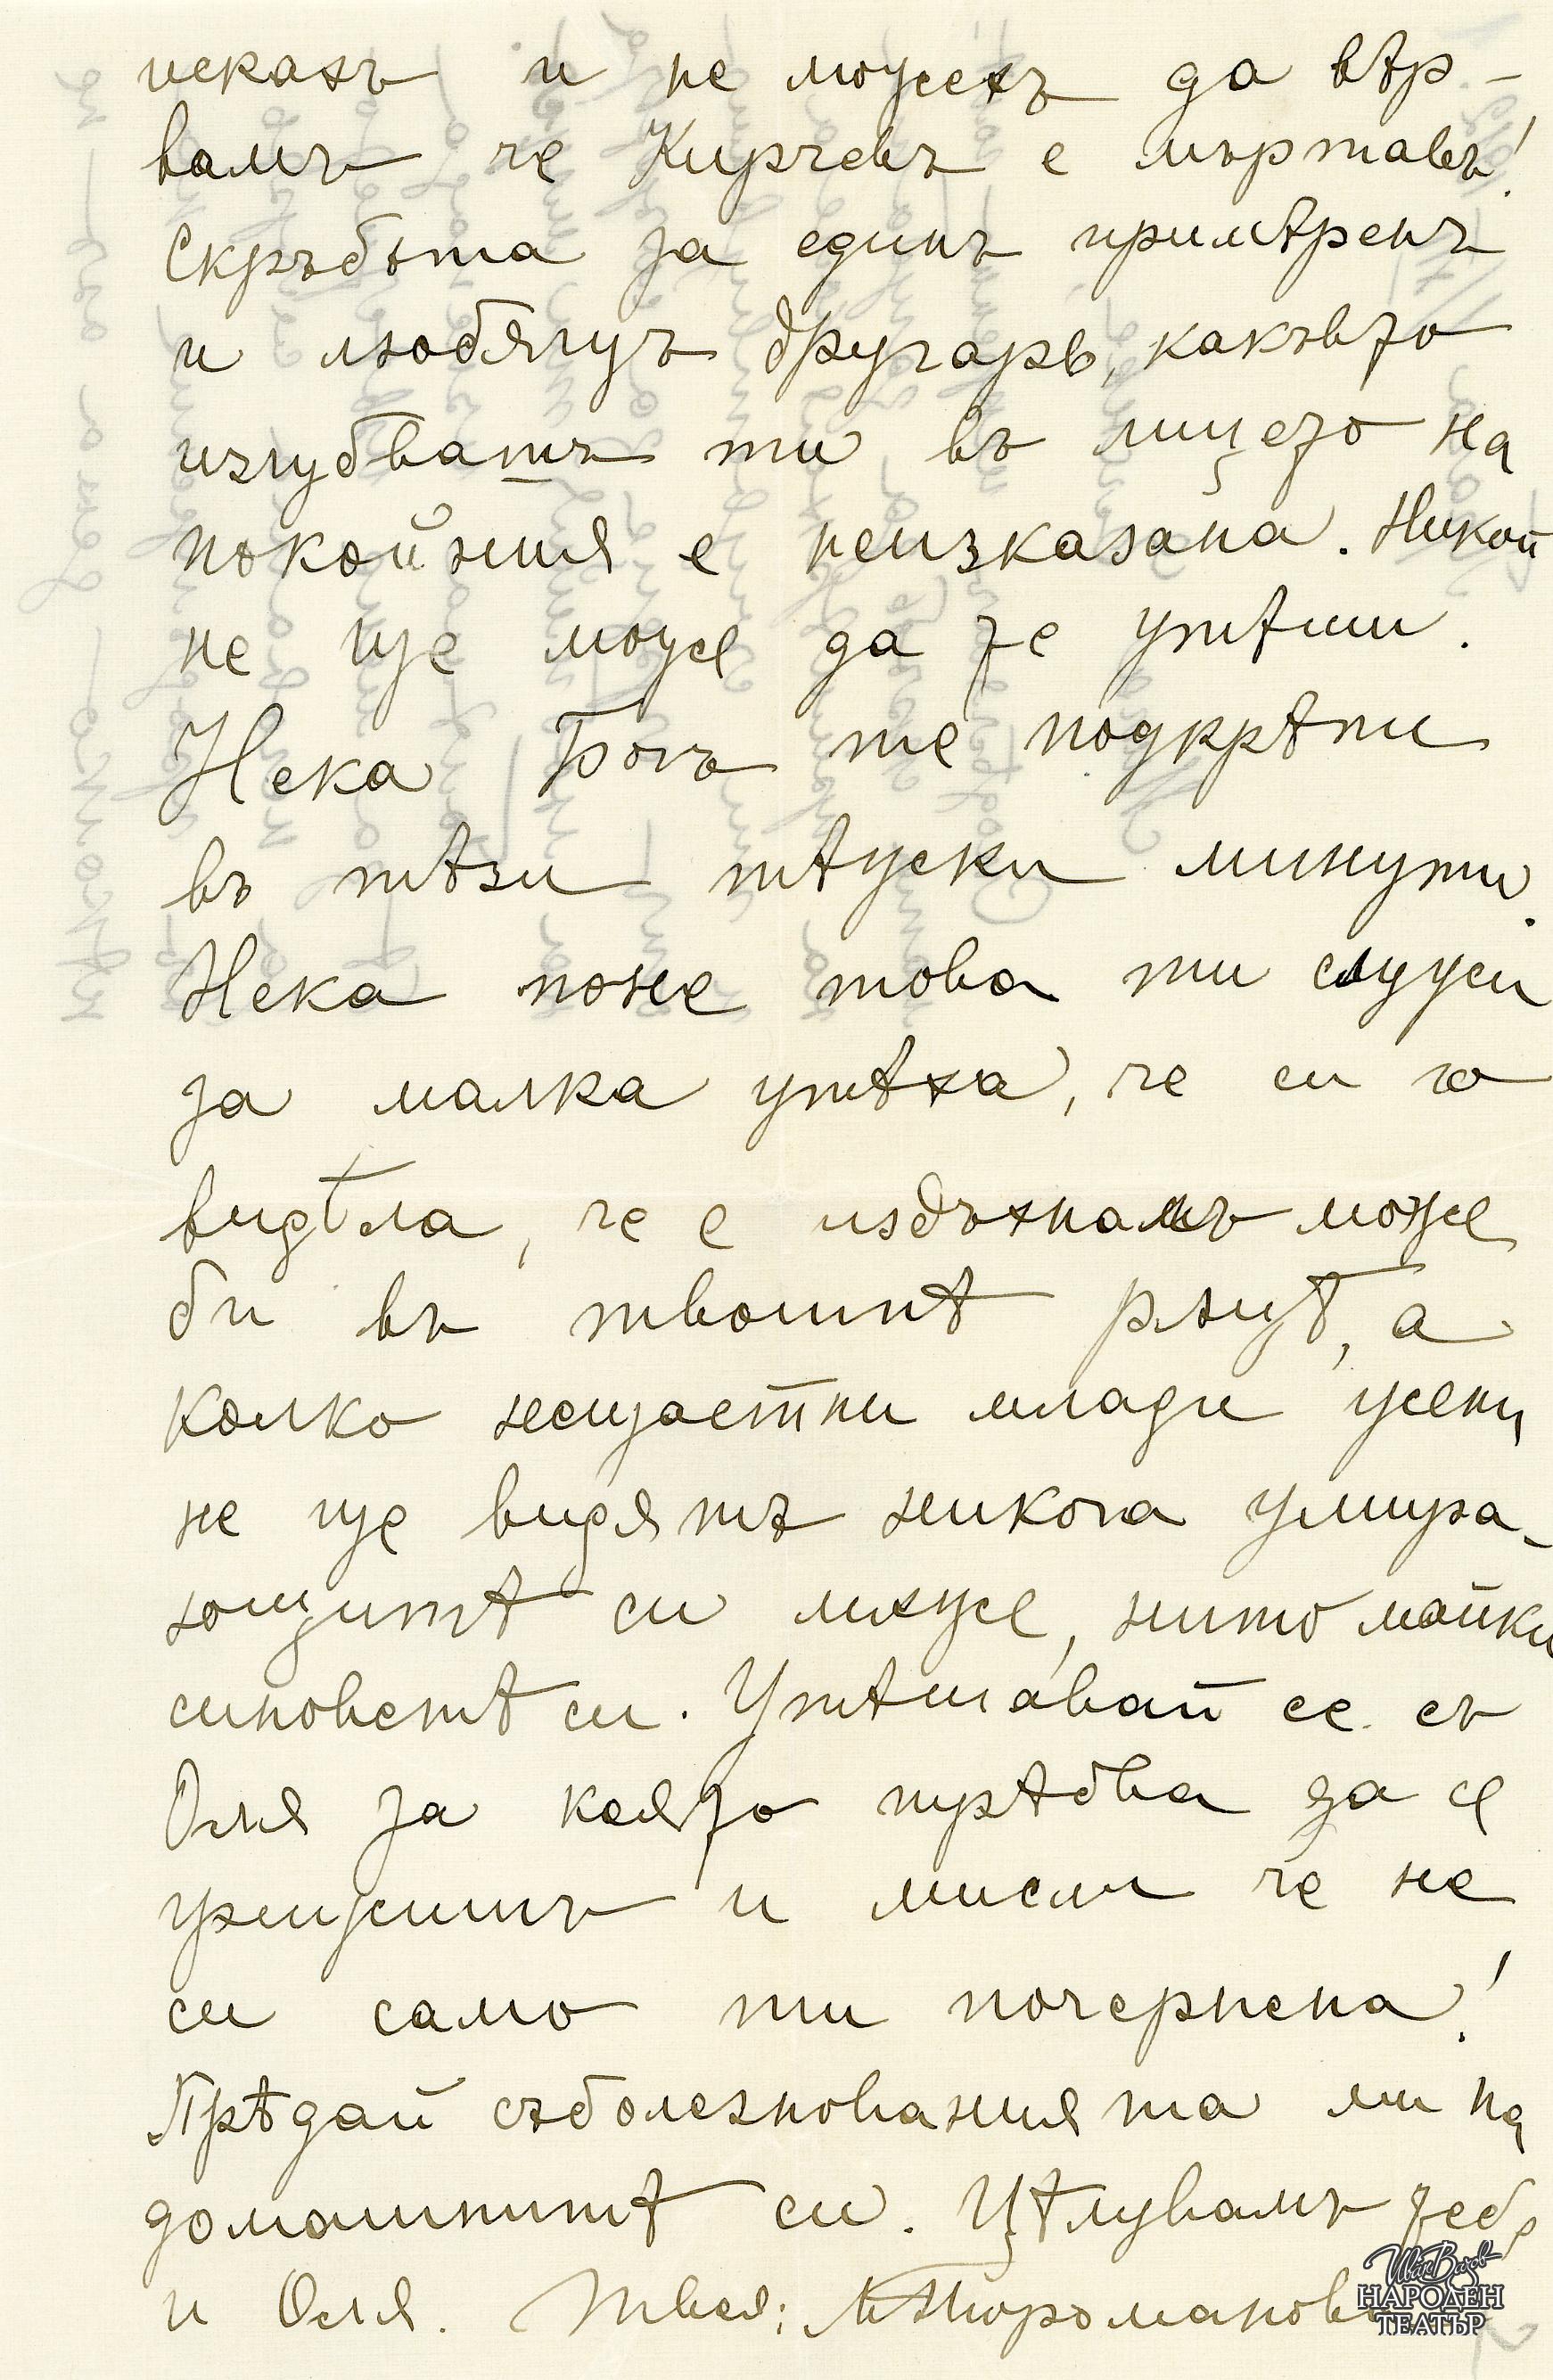 искахъ и не можехъ да вѣр-
вамъ че Кирчевъ е мъртавъ!
Скръбьта за единъ примѣренъ
и любящъ другарь, какъвто
изгубвашъ ти въ лицето на
покойния е неизказана. Никой
не ще може да те утѣши.
Нека Богъ те подкрѣпи
въ тѣзи тѣжки минути.
Нека поне това ти служи
за малка утѣха, че си го
видѣла, че е издъхналъ може
би въ твоитѣ рѫцѣ, а
колко нещастни млади жени
не ще видятъ никога умира-
ющитѣ си мѫже, нито майки
синоветѣ си. Утѣшавай се съ
Оля за която трѣбва да се
грижишъ и мисли че не
си само ти почернена!
Прѣдай съболезнованията ми на
домашнитѣ си. Цѣлувамъ тебе
и Оля. Твоя:
Иван Вазов
НАРОДЕН
ТЕАТЪР